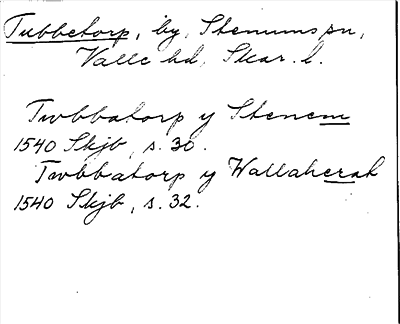 Tubbetorp, by, Stenums sn,
Valle hd, Skar. l.
Twbbatorp y Stenem
1540 Skjb, s. 30.
Twbbatorp y Wallaherat
1540 Skjb, s. 32.